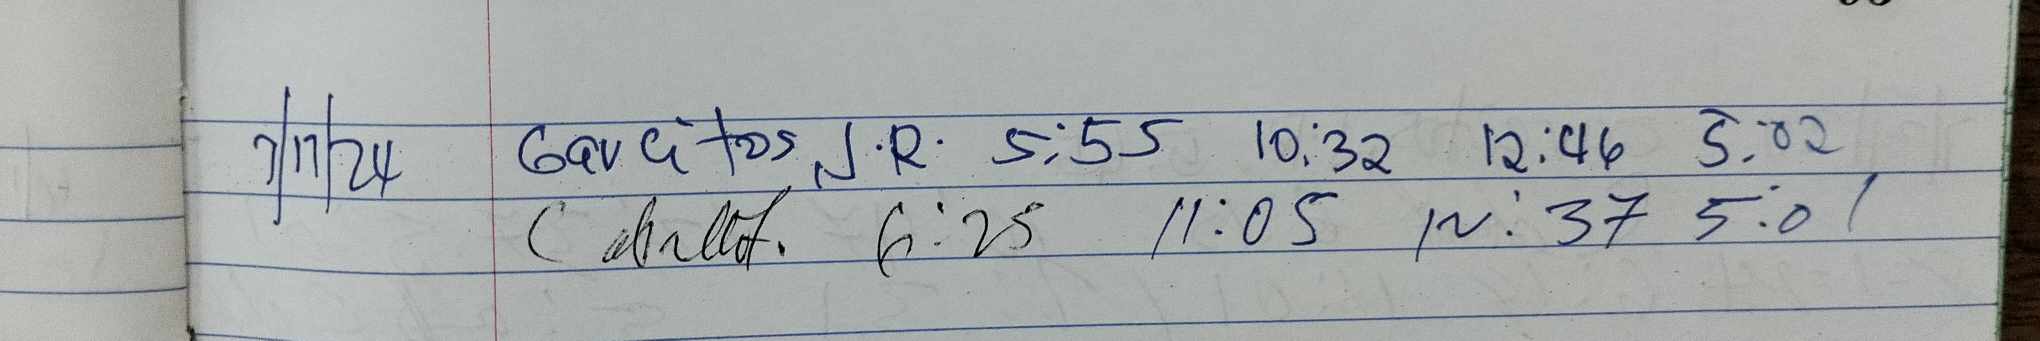 7/17/24 Garcitos J.R. 5:55 10:32 12:46 5:02
6:25 11:05 12:37 5:01